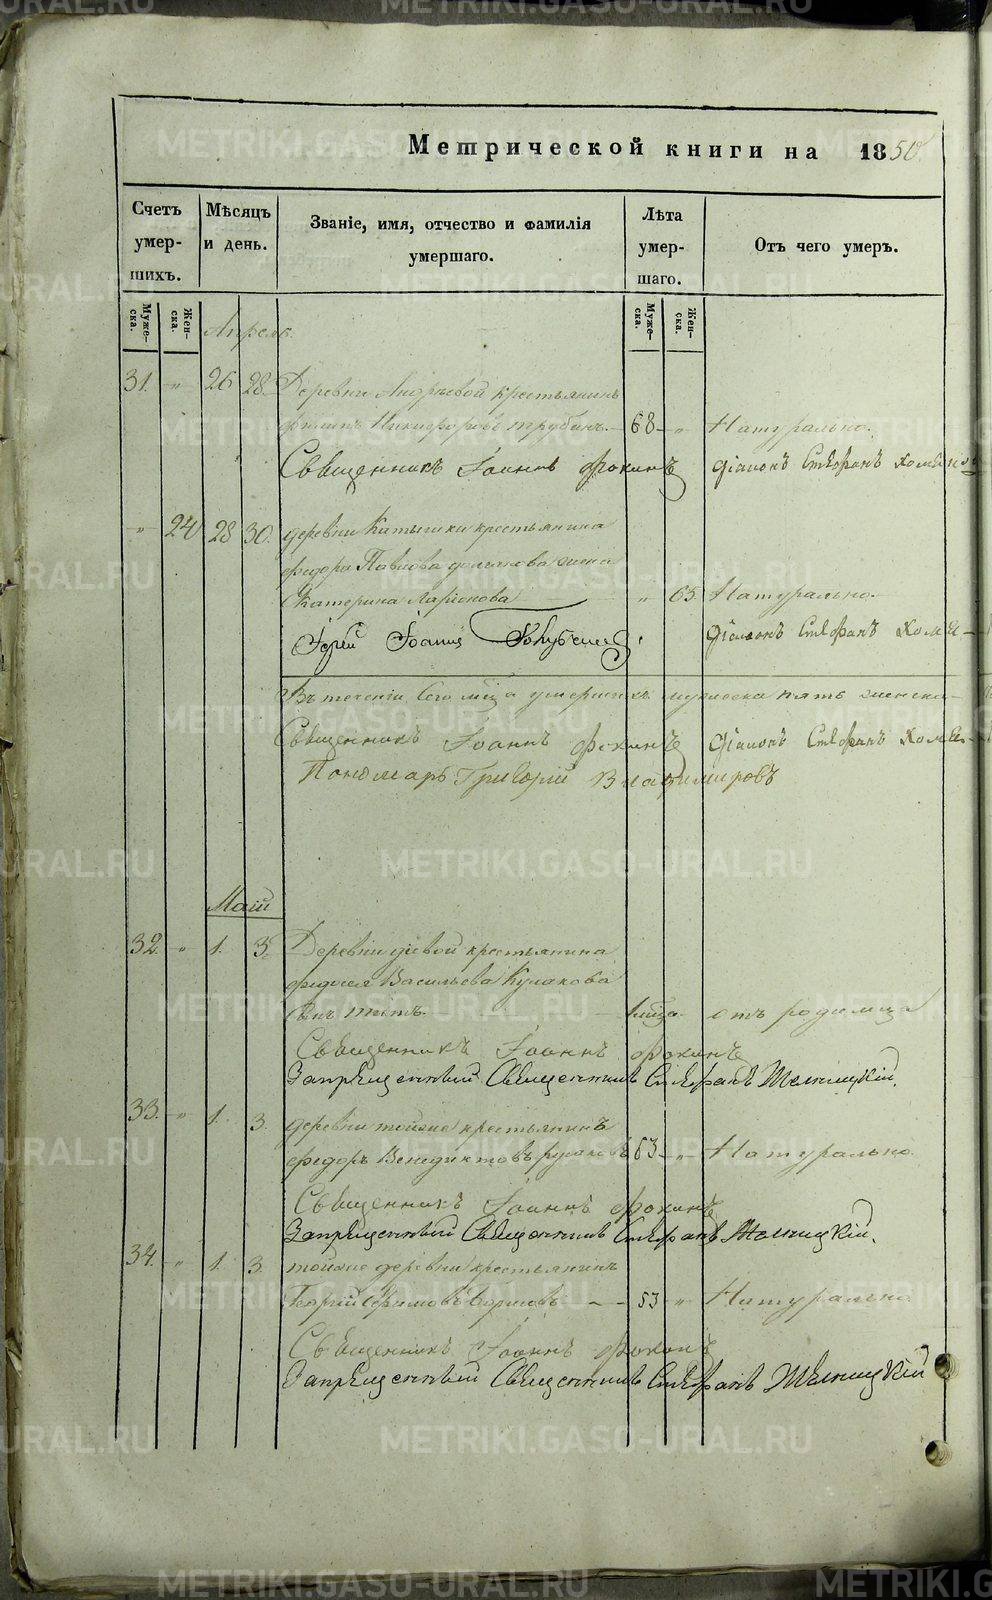 Метрической книги на 1850.
Счетъ умер-шихъ.
Мѣсяцъ и день.
Званіе, имя, отчество и фамилія умершаго.
Лѣта умер-шаго.
Отъ чего умеръ.
Муже-ска.
Жен-ска.
Муже-ска.
Жен-ска.
Апрель.
31. " 26 28. Деревни Андрѣевой крестьянинъ
Филипъ Никифоровъ трубинъ. 68 " Натурально.
Священникъ Іоаннъ Фокинъ Діаконъ Стефанъ
" 24 28 30. деревни Катышки крестьянина
федора Павлова жена
Катерина Ларіонова " 65. Натурально.
Іерей Іоаннъ Діаконъ Стефанъ
Въ теченіи сего мѣсца умершихъ мужеска пять женска
Священникъ Іоаннъ Фокинъ Діаконъ Стефанъ
Пономарь Григорій Владимировъ
Маій
32. " 1. 3. Деревни крестьянина
федосея Васильева Кулакова
сынъ мѣсца отъ родимца
Священникъ Іоаннъ Фокинъ
Запрещенный Священникъ Стефанъ
33. " 1. 3. деревни тойже крестьянинъ
федоръ Венедиктовъ 63 " Натурально.
Священникъ Іоаннъ Фокинъ
Запрещенный Священникъ Стефанъ
34. " 1. 3. тойже деревни крестьянинъ
53 " Натурально
Священникъ Іоаннъ Фокинъ
Запрещенный Священникъ Стефанъ
METRIKI.GASO-URAL.RU